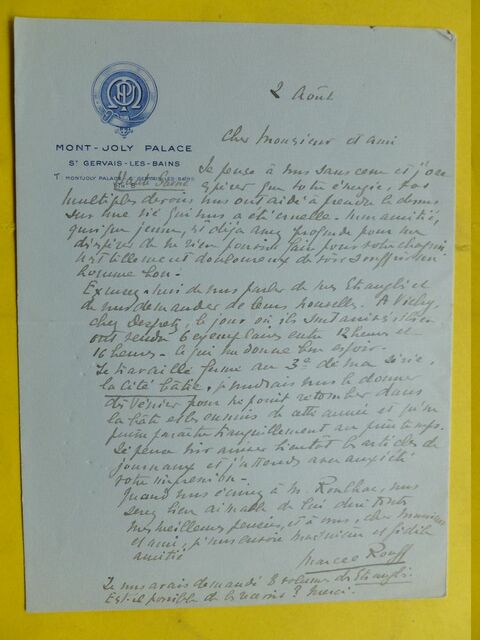 MONT-JOLY PALACE
ST GERVAIS-LES-BAINS
T. MONTJOLY PALACE ST GERVAIS-LES-BAINS
Haute Savoie
2 Août
Cher Monsieur et ami
Je pense à vous sans cesse et j'ose
espérer que votre énergie, vos
multiples devoirs vous ont aidé à prendre le dessus
sur une vie qui vous a été cruelle. Mon amitié,
quoique jeune, est déjà assez profonde pour me
désespérer de ne rien pouvoir faire pour votre chagrin
et tellement douloureux de voir souffrir un
homme bon.
Excusez-moi de vous parler de mes Etrangli et
de vous demander de leurs nouvelles. A Vichy,
chez Desprez, le jour où ils
ont vendu 6 exemplaires entre 12 heures et
16 heures. Ce qui me donne bon espoir.
Je travaille ferme au 3e de ma série,
la Cité bâtie, je voudrais vous le donner
fin Février pour ne point retomber dans
la hâte et les ennuis de cette année et qu'il
puisse paraître tranquillement au printemps.
Je pense que
journaux et j'attends avec anxiété
votre impression.
Quand vous écrirez à M. vous
serez bien aimable de lui dire toutes
mes meilleures pensées, et à vous, cher Monsieur
et ami, j'vous envoie ma vieille et fidèle
amitié
Marcel Rouff
Je vous avais demandé 3 volumes des Etrangli.
Est-il possible de les avoir? Merci.